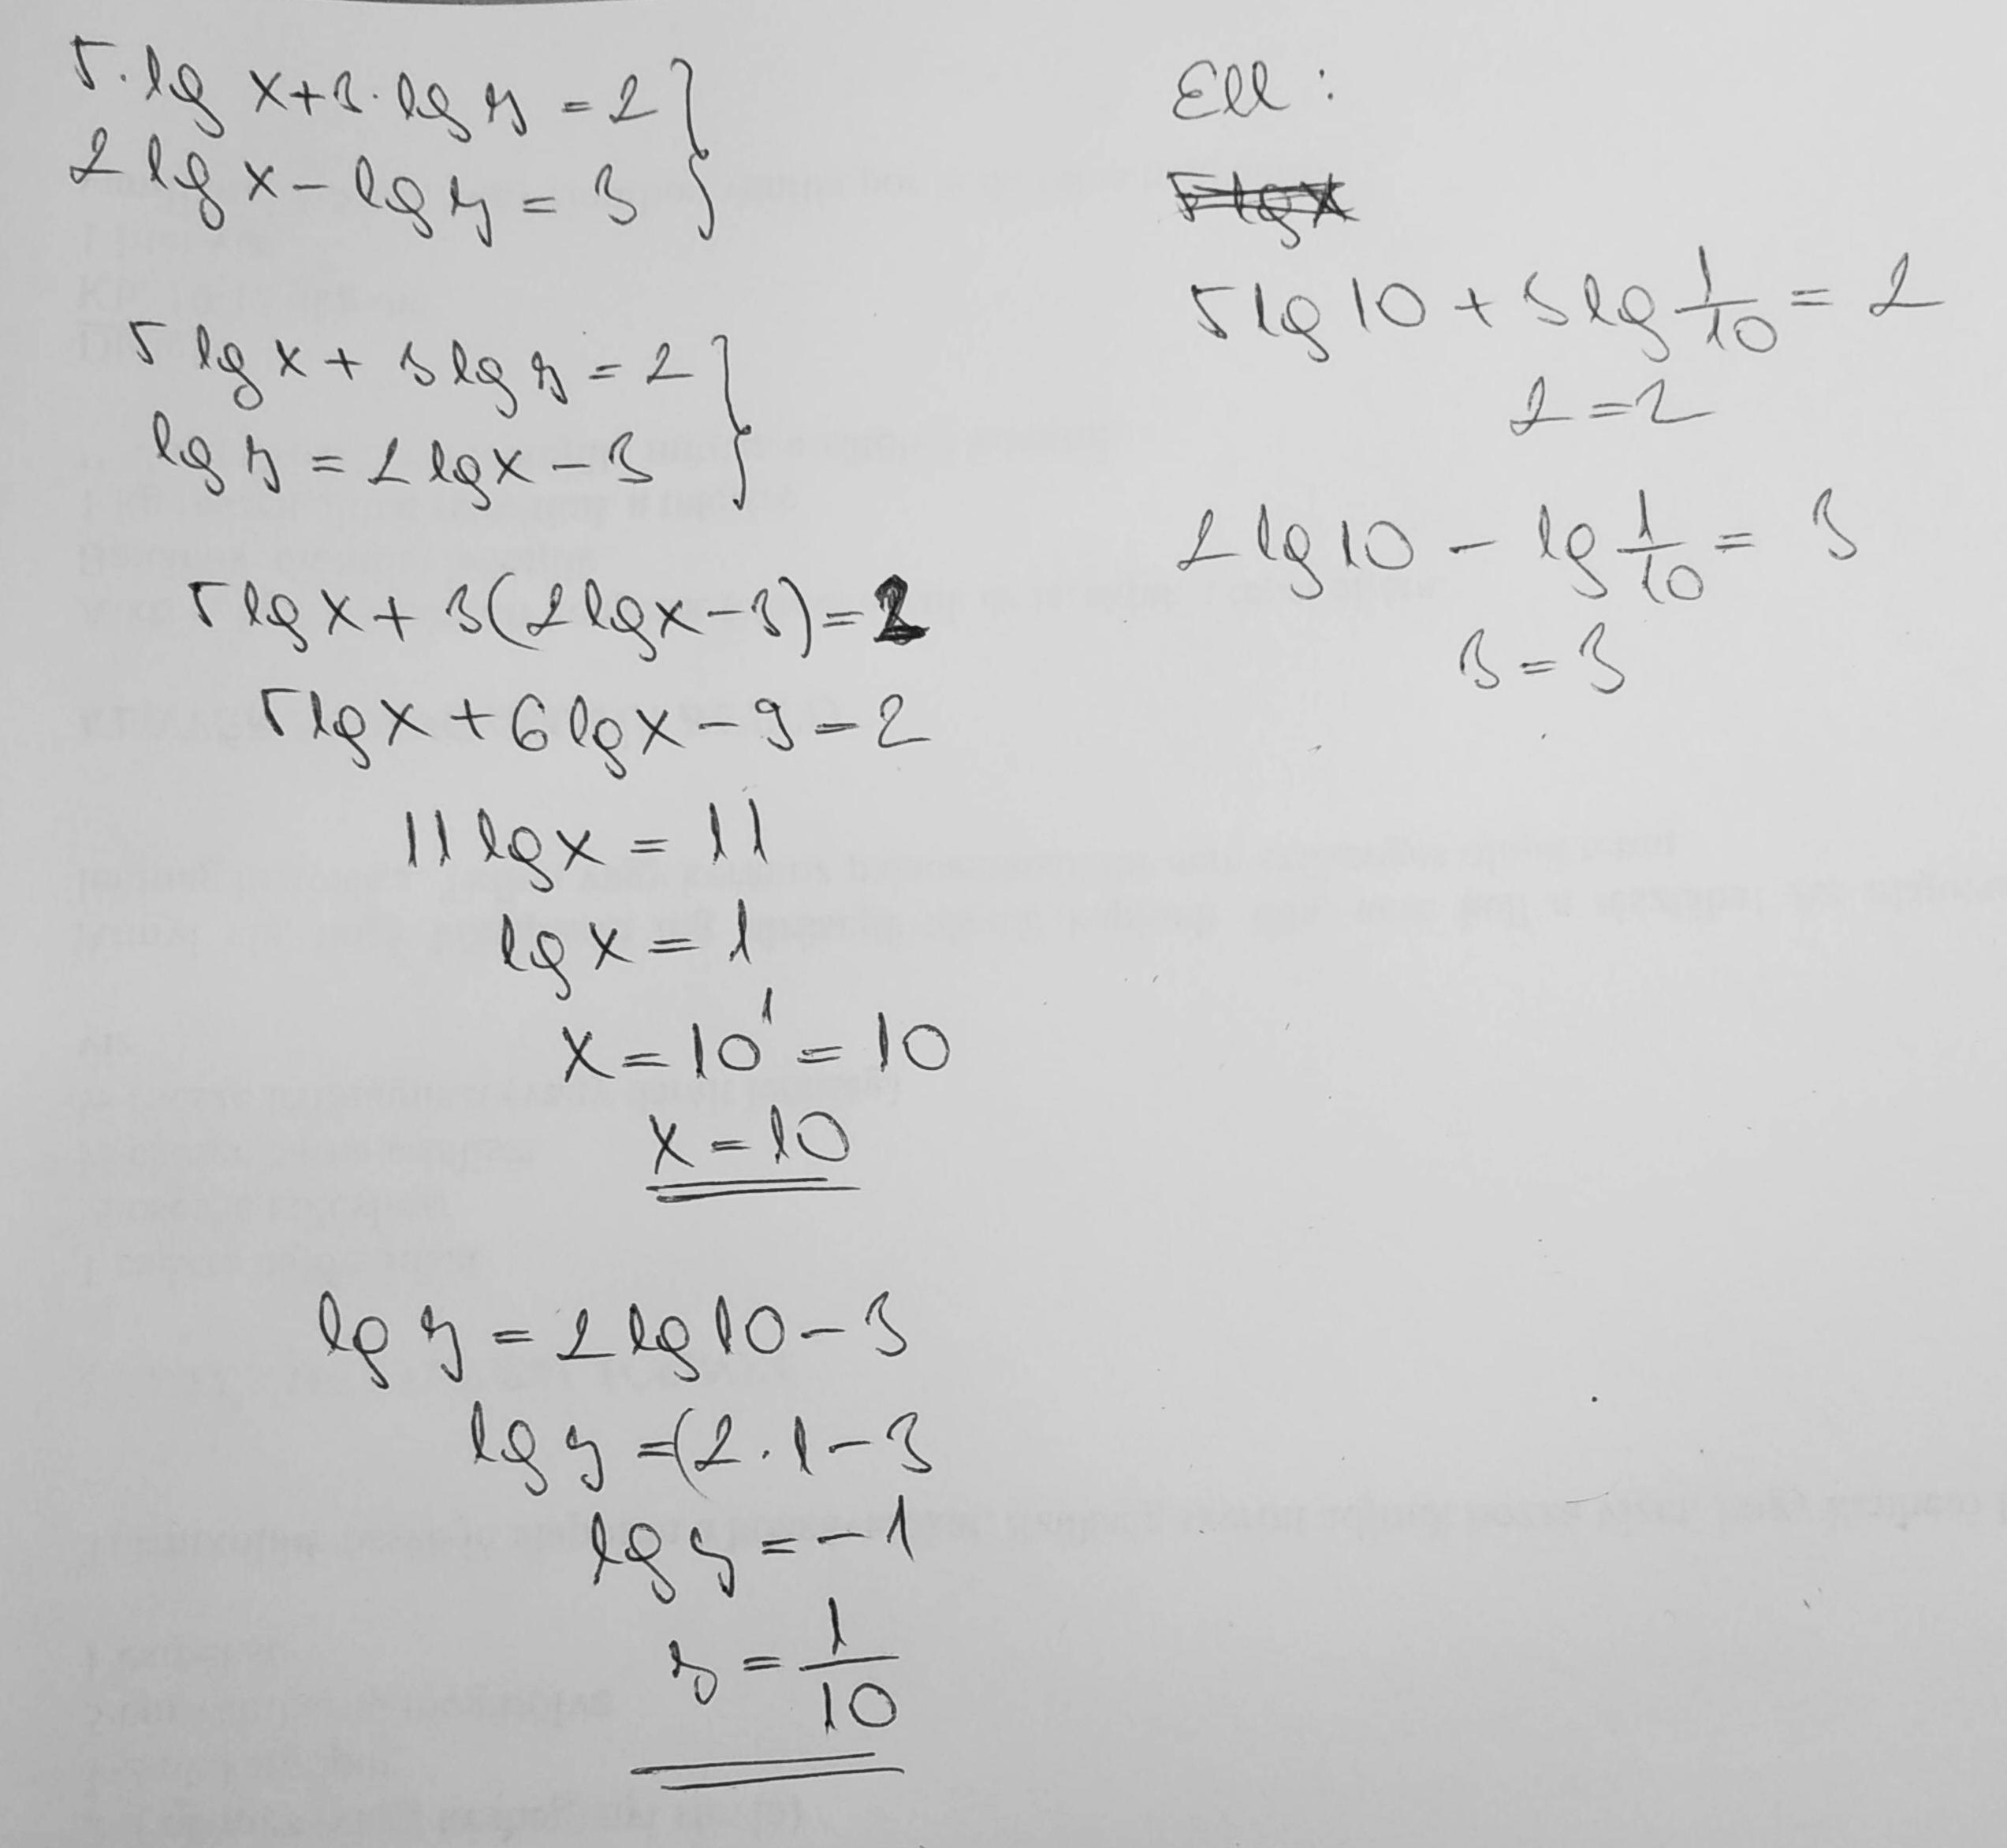 5·lg x+3·lg y = 2 }
2 lg x - lg y = 3 }
5 lg x + 3 lg y = 2 }
lg y = 2 lg x - 3 }
5 lg x + 3(2 lg x - 3) = 2
5 lg x + 6 lg x - 9 = 2
11 lg x = 11
lg x = 1
x = 10¹ = 10
x = 10
lg y = 2 lg 10 - 3
lg y = (2 · 1 - 3
lg y = -1
y = 1/10
Ell :
5 lg x
5 lg 10 + 3 lg 1/10 = 2
2 = 2
2 lg 10 - lg 1/10 = 3
3 = 3